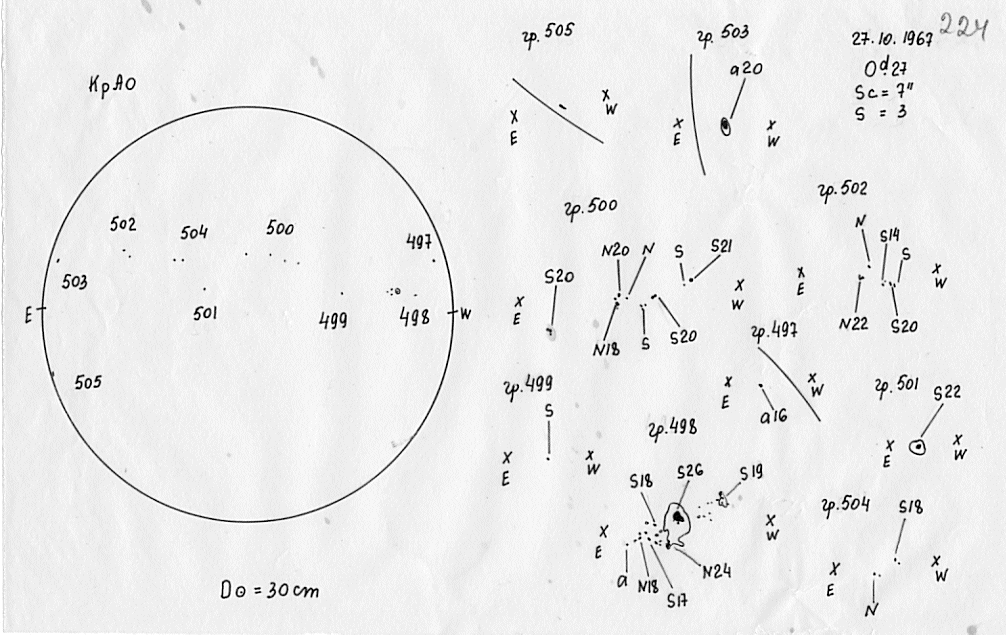 224
27.10.1967
0ᵈ.27
Sc = 7"
S = 3
КрАО
502
504
500
497
503
501
499
498
E
W
505
D⊙ = 30 cm
гр. 505
X
E
X
W
гр. 503
a20
X
E
X
W
гр. 500
S20
N20
N
S
S21
N18
S
S20
X
E
X
W
гр. 502
N
S14
S
N22
S20
X
E
X
W
гр. 497
X
E
X
W
a16
гр. 499
S
X
E
X
W
гр. 498
S18
S26
S19
X
E
X
W
a
N18
S17
N24
гр. 501
S22
X
E
X
W
гр. 504
S18
X
E
X
W
N